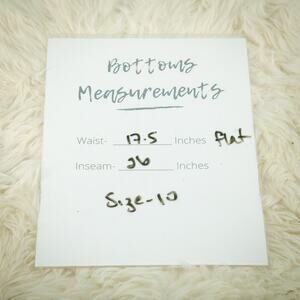 Bottoms
Measurements
Waist- 17.5 Inches flat
Inseam- 26 Inches
Size-10